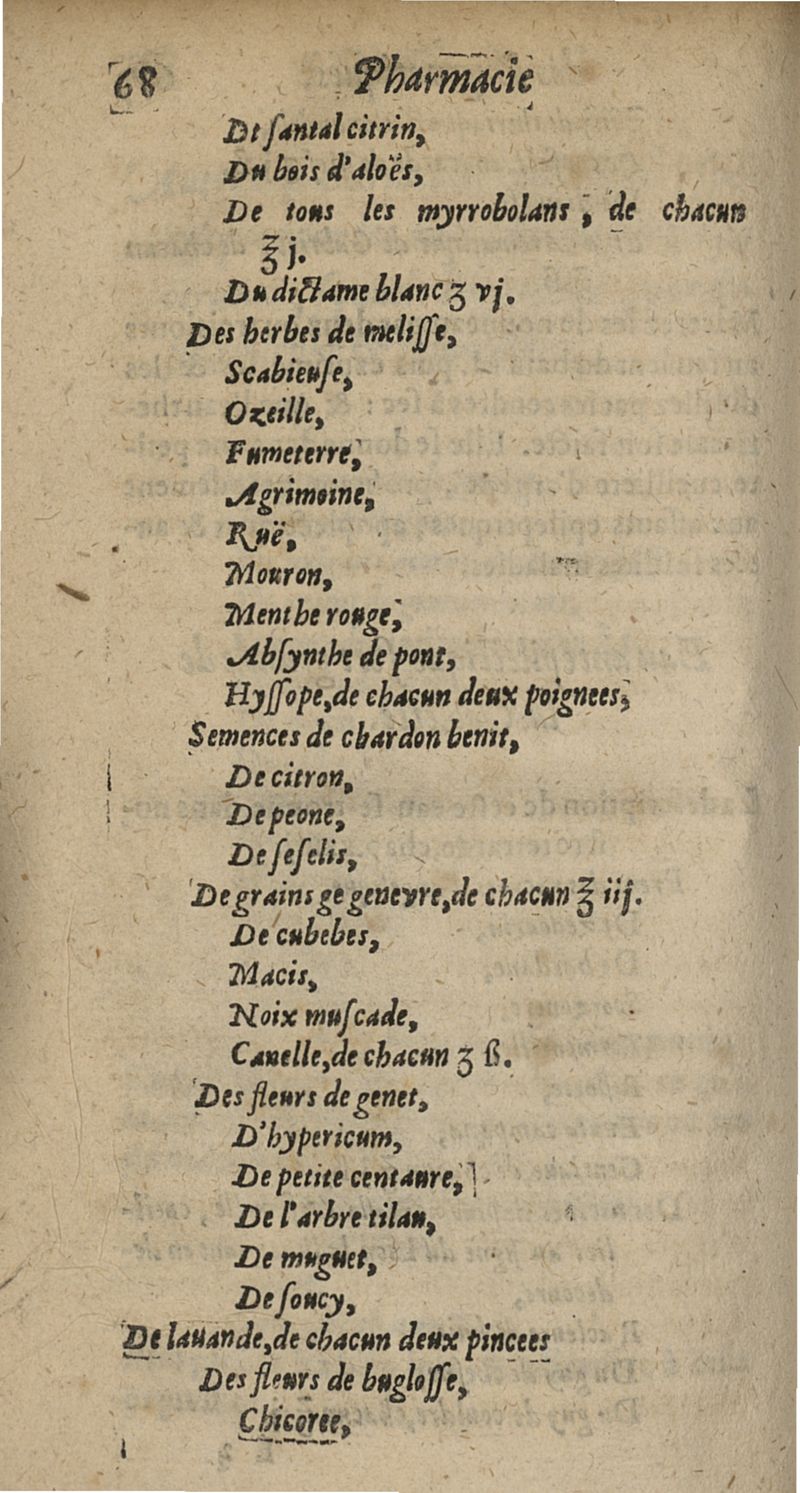 68 Pharmacie
De ſantal citrin,
Du bois d'aloës,
De tous les myrrobolans, de chacun
℥ j.
Du dictame blanc ʒ vj.
Des herbes de meliſſe,
Scabieuſe,
Ozeille,
Fumeterre,
Agrimoine,
Ruë,
Mouron,
Menthe rouge,
Abſynthe de pont,
Hyſſope, de chacun deux poignees,
Semences de chardon benit,
De citron,
De peone,
De ſeſelis,
De grains ge genevre, de chacun ℥ iij.
De cubebes,
Macis,
Noix muſcade,
Canelle, de chacun ʒ ß.
Des fleurs de genet,
D'hypericum,
De petite centaure,
De l'arbre tilau,
De muguet,
De ſoucy,
De lauande, de chacun deux pincees
Des fleurs de bugloſſe,
Chicoree,